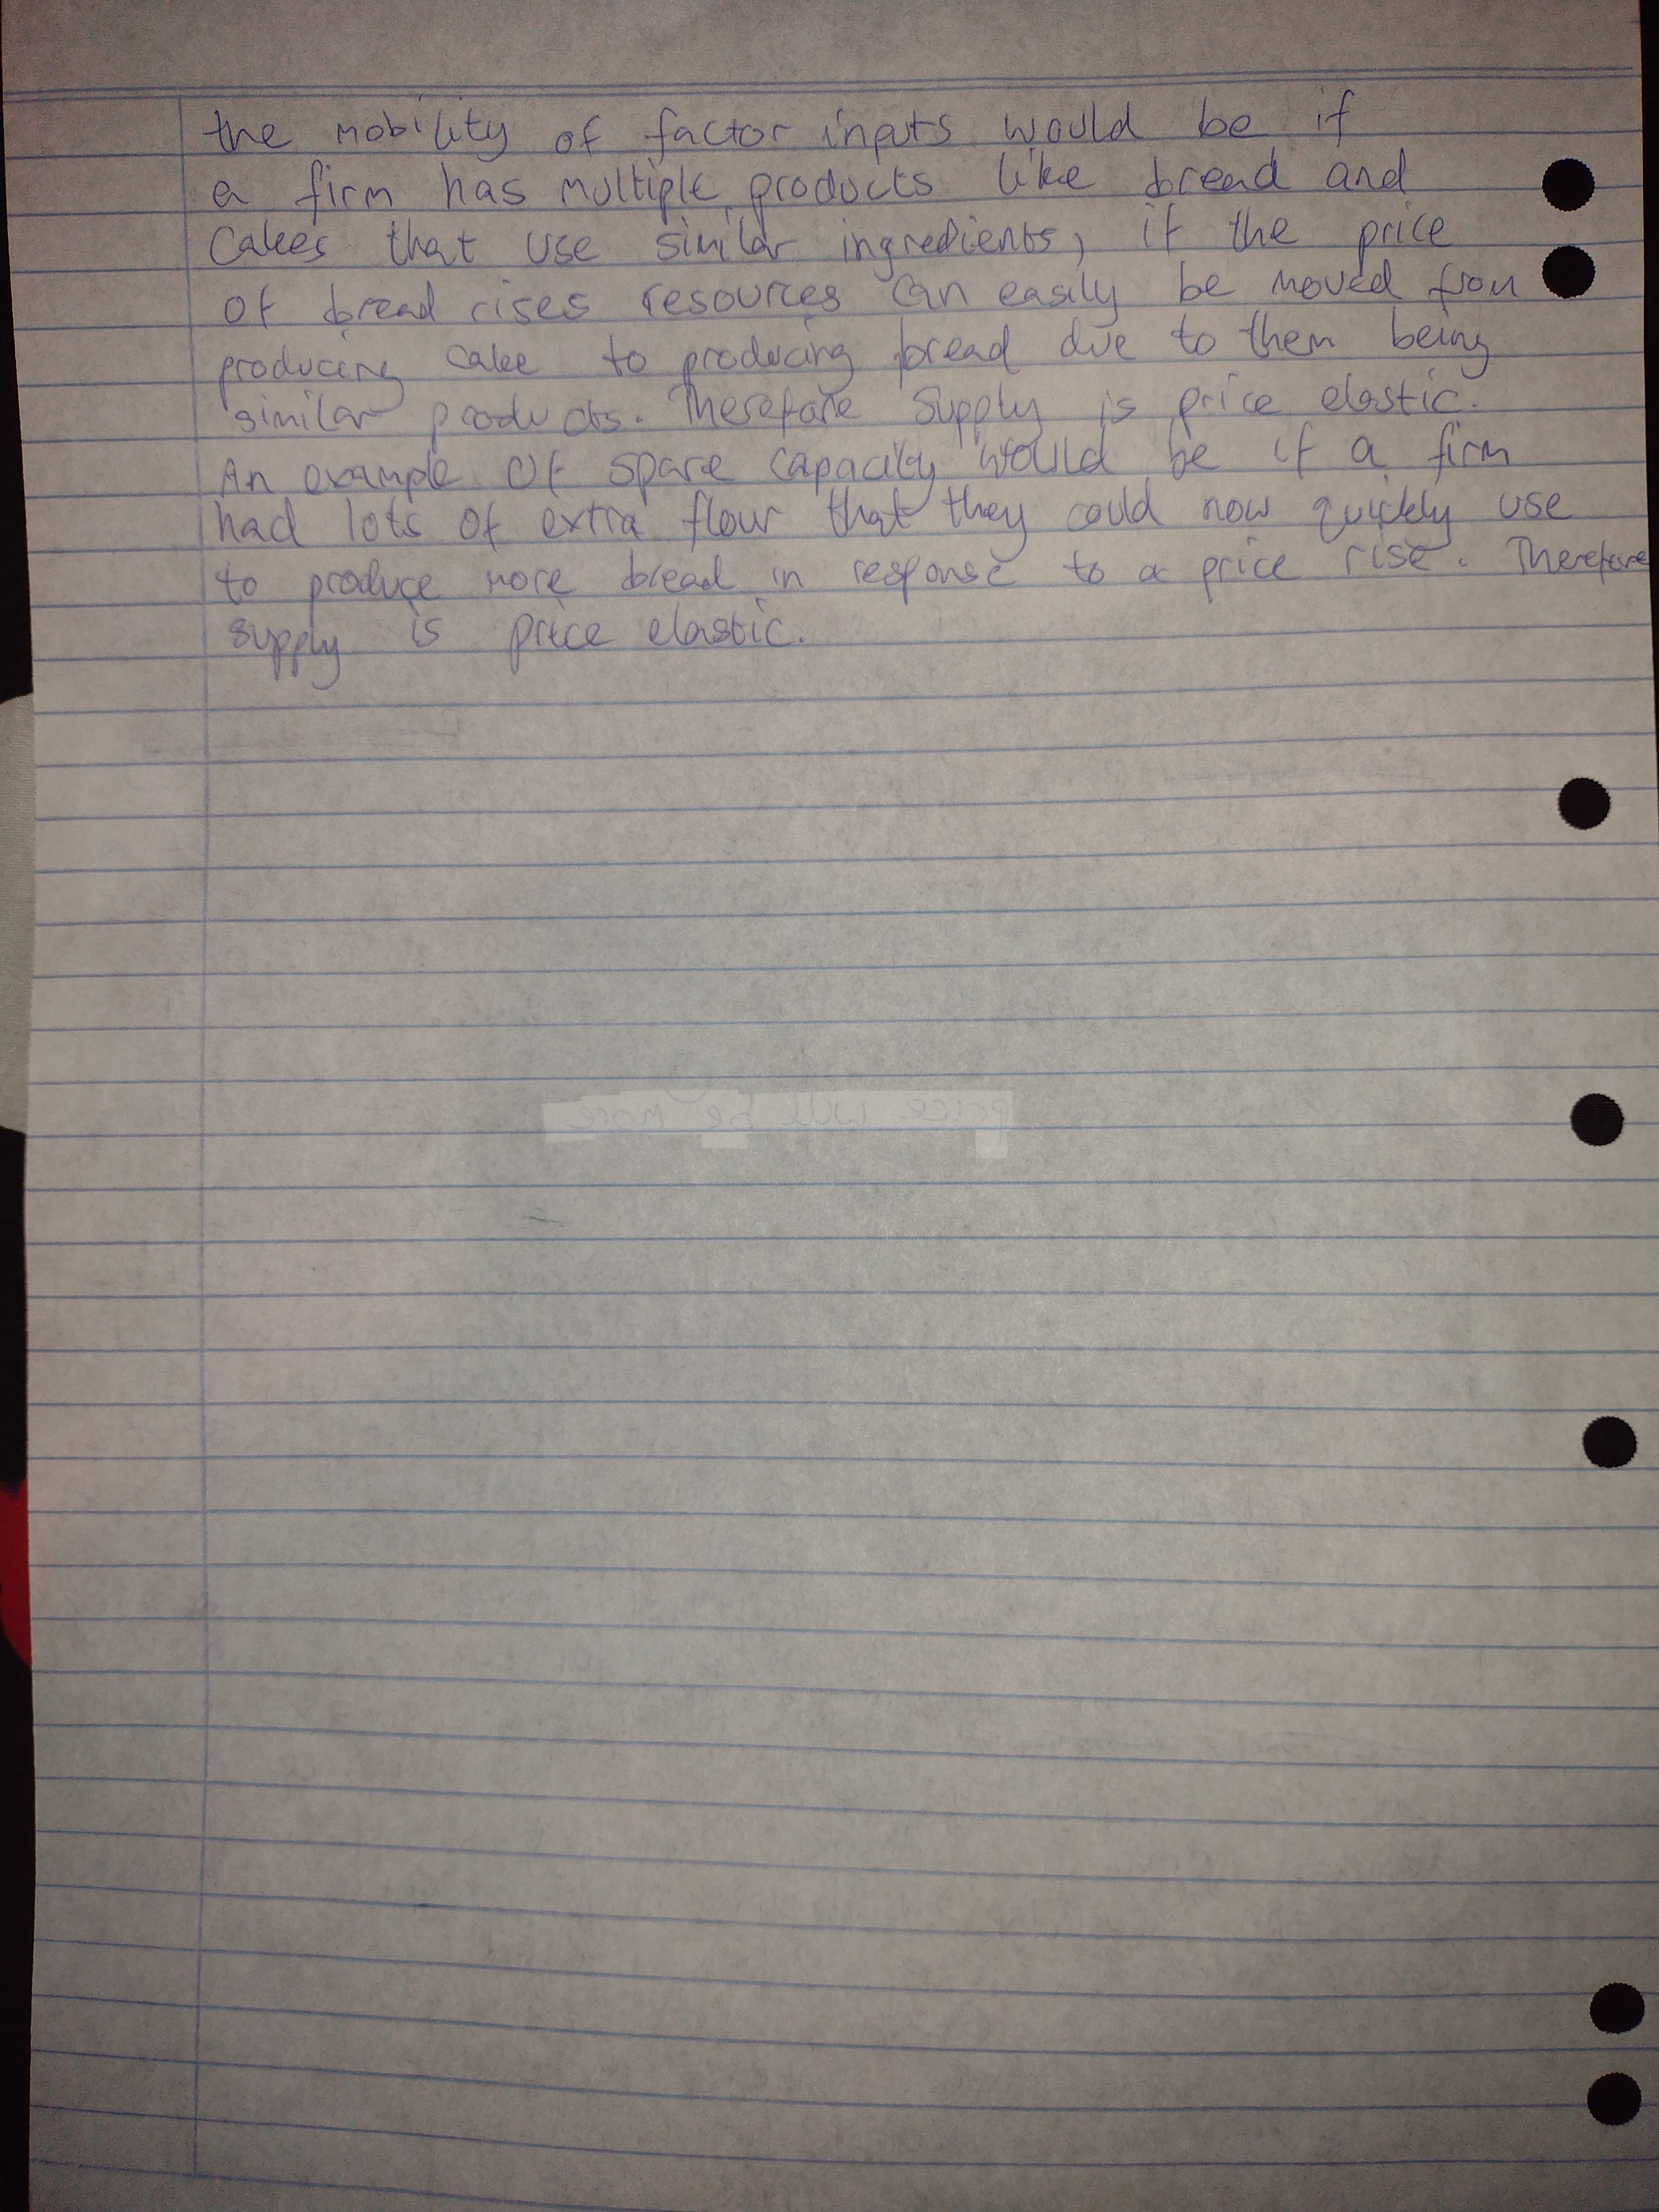 the mobility of factor inputs would be if
a firm has multiple products like bread and
Cakes that use similar ingredients, if the price
of bread rises resources can easily be moved from
producing cake to producing bread due to them being
similar products. Therefore supply is price elastic.
An example of spare capacity would be if a firm
had lots of extra flour that they could now quickly use
to produce more bread in response to a price rise. Therefore
supply is price elastic.
price will be more